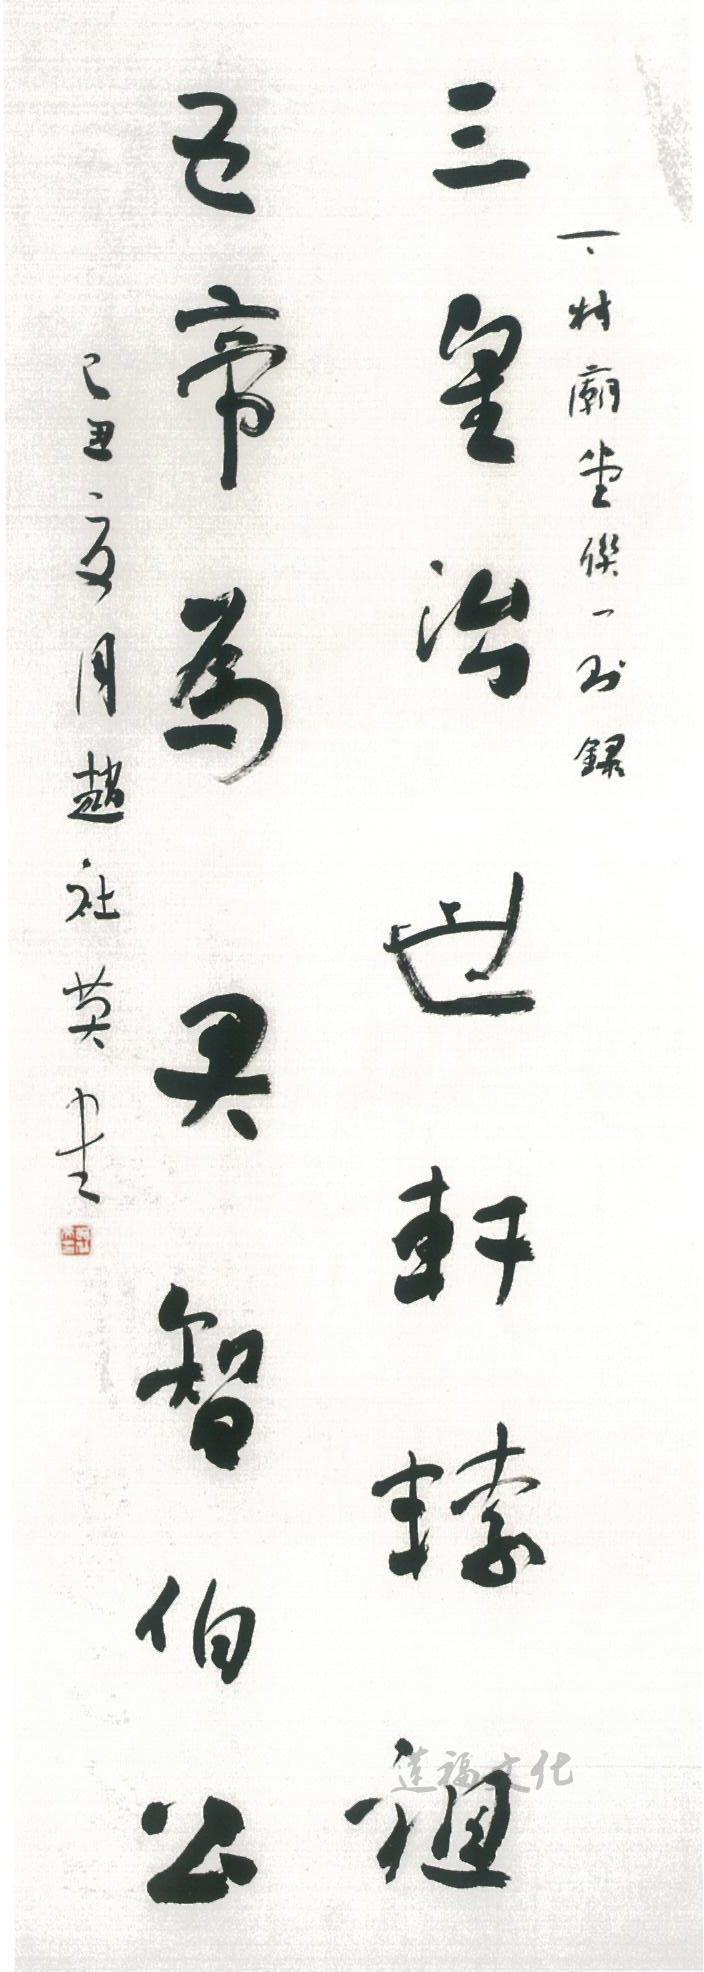 下村廟堂聯一則錄
三皇治世軒轅祖
五帝為君智伯公
己丑夏月趙社英書
造福文化